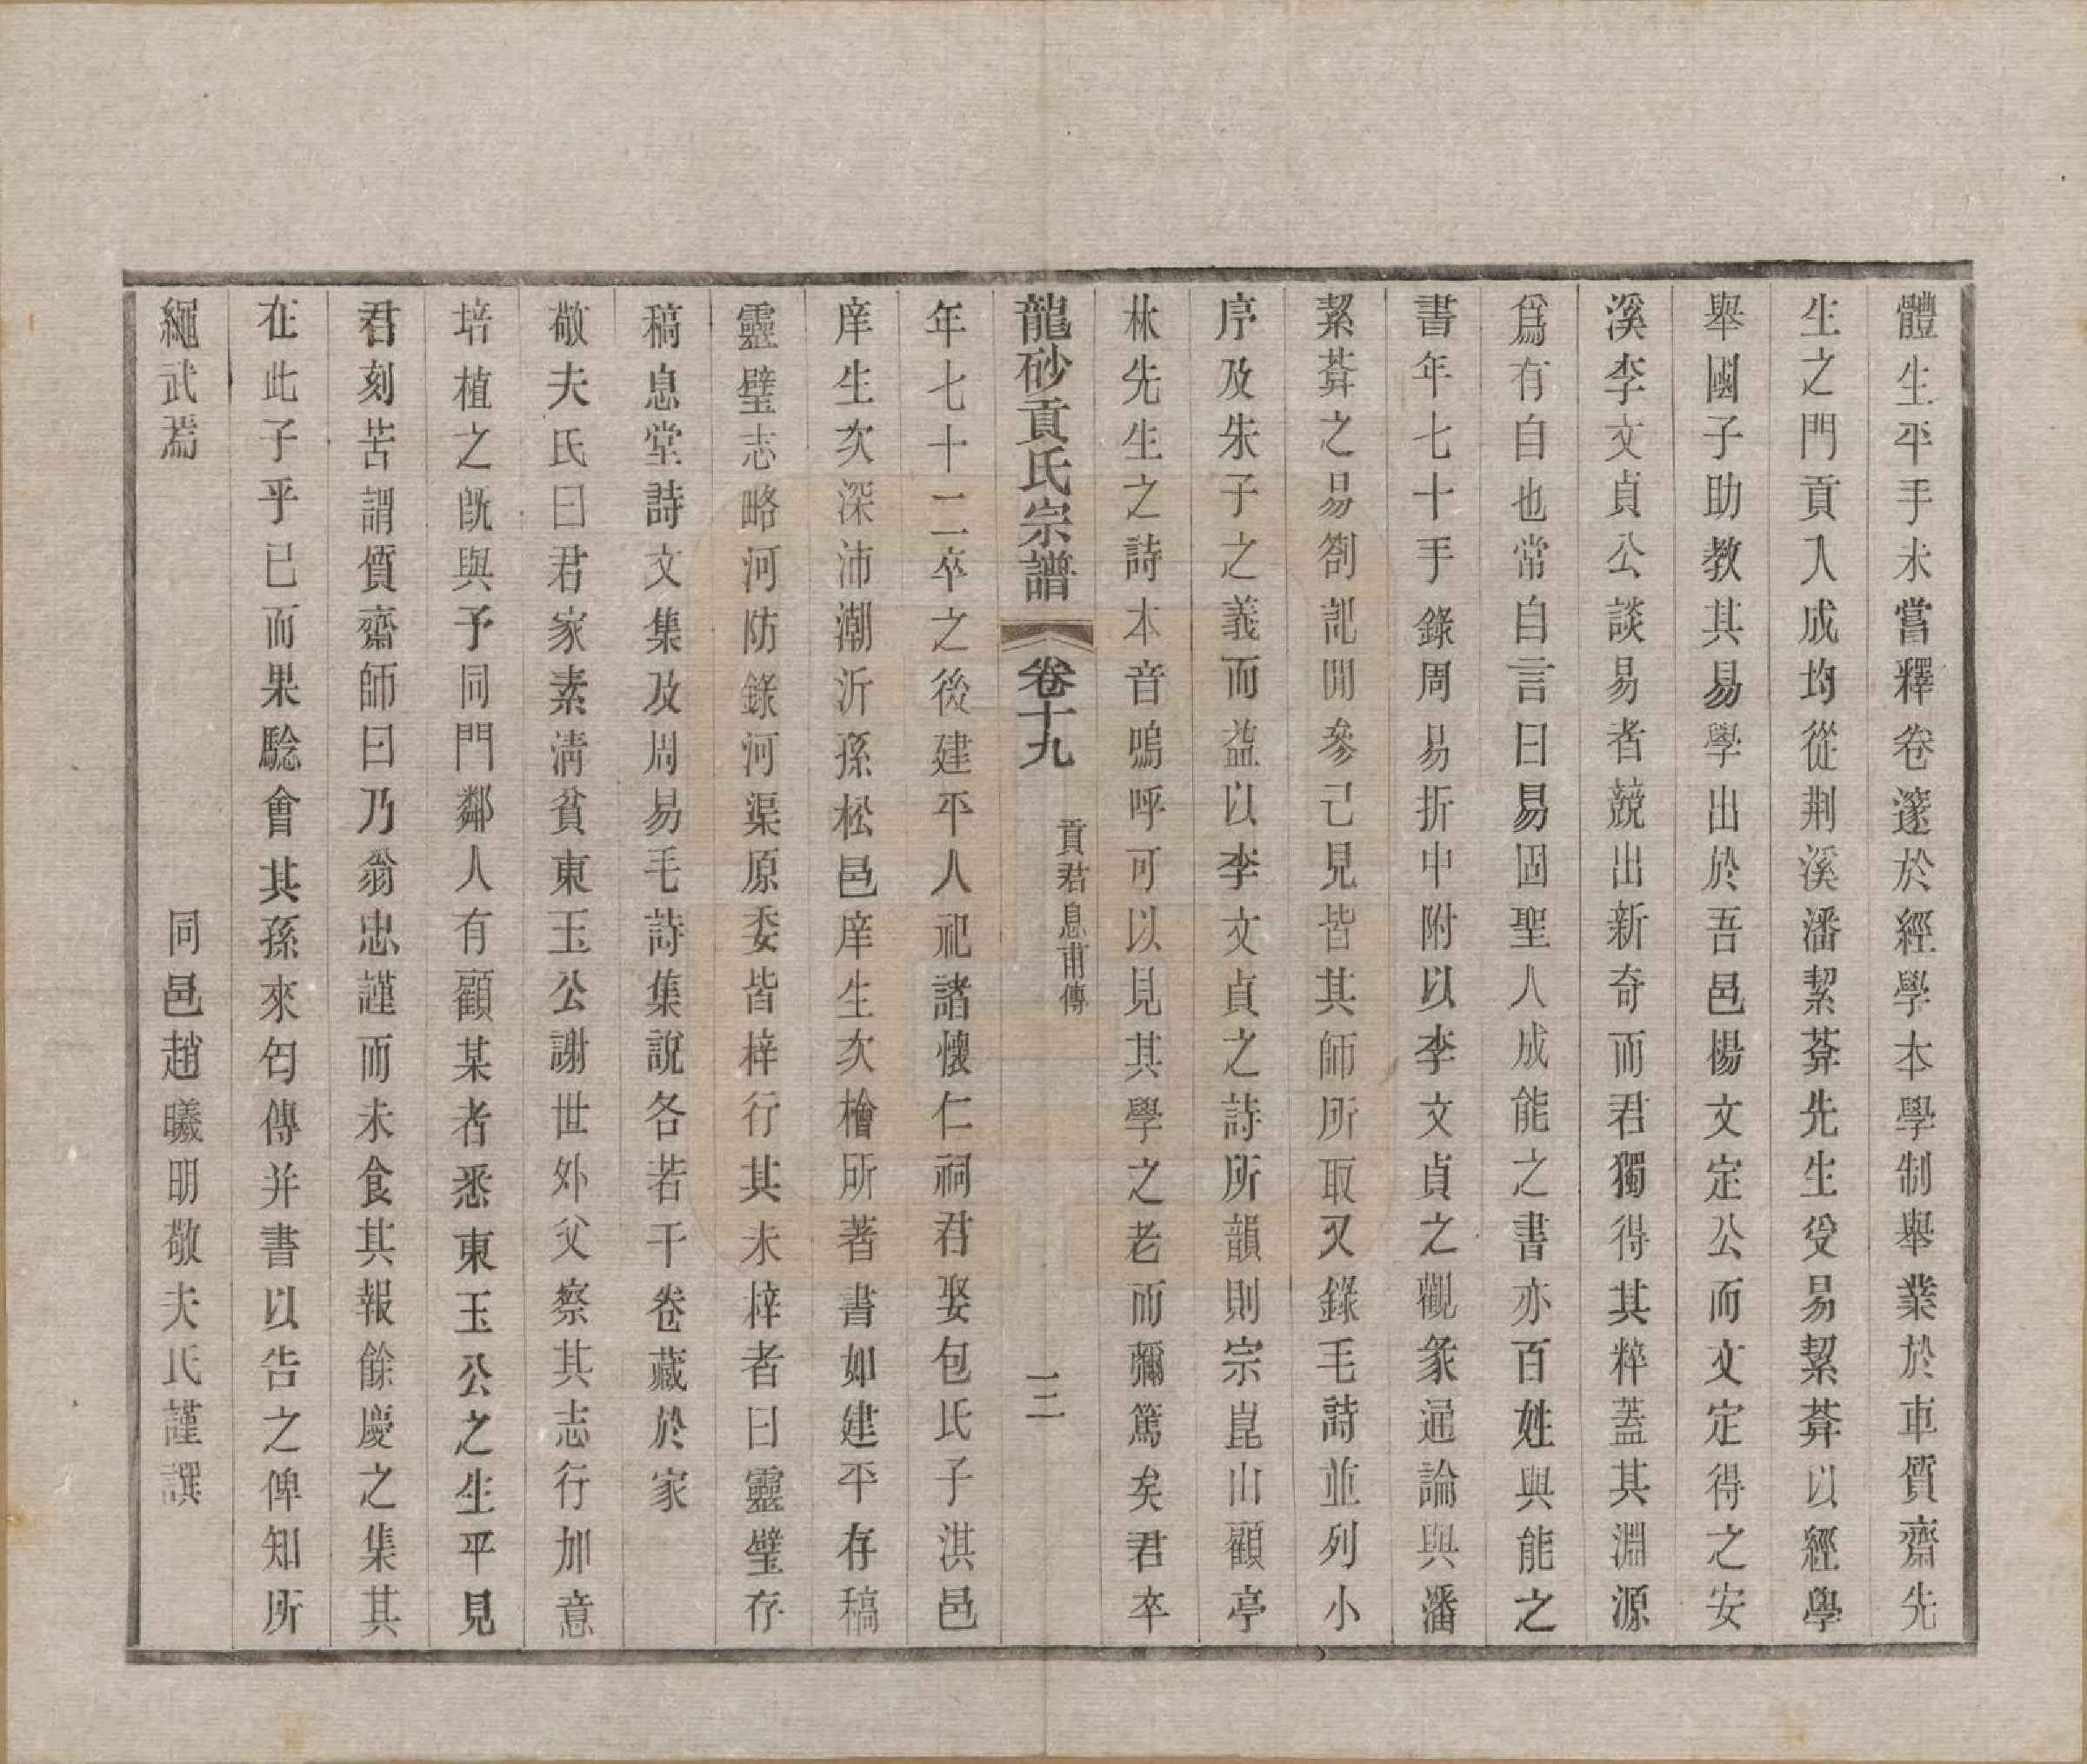 體生平手未嘗釋卷邃於經學本學制舉業於車質齋先
生之門貢入成均從荆溪潘絜葊先生受易絜葊以經學
舉國子助教其易學出於吾邑楊文定公而文定得之安
溪李文貞公談易者競出新奇而君獨得其粹蓋其淵源
爲有自也常自言曰易固聖人成能之書亦百姓與能之
書年七十手錄周易折中附以李文貞之觀彖通論與潘
絜葊之易劄記閒參己見皆其師所取又錄毛詩並列小
序及朱子之義而益以李文貞之詩所韻則宗崑山顧亭
林先生之詩本音嗚呼可以見其學之老而彌篤矣君卒
龍砂貢氏宗譜 卷十九 貢君息甫傳 三
年七十二卒之後建平人祀諸懷仁祠君娶包氏子淇邑
庠生次深沛潮沂孫松邑庠生次檜所著書如建平存稿
靈璧志略河防錄河渠原委皆梓行其未梓者曰靈璧存
稿息堂詩文集及周易毛詩集說各若干卷藏於家
敬夫氏曰君家素淸貧東玉公謝世外父察其志行加意
培植之旣與予同門鄰人有顧某者悉東玉公之生平見
君刻苦謂質齋師曰乃翁忠謹而未食其報餘慶之集其
在此子乎已而果驗會其孫來匄傳并書以告之俾知所
繩武焉 同邑趙曦明敬夫氏謹譔